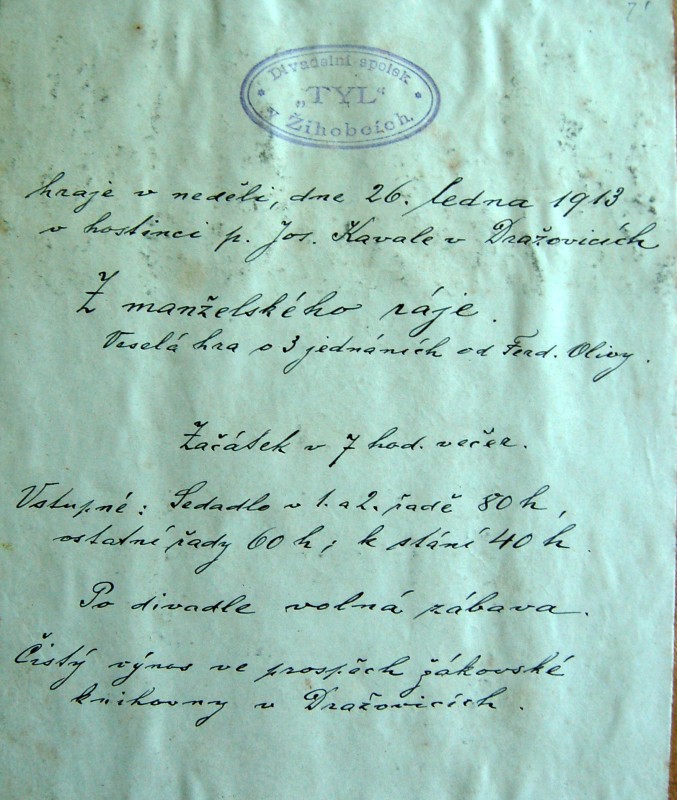 Divadelní spolek
„TYL“
v Žihobcích.
hraje v neděli, dne 26. ledna 1913
v hostinci p. Jos. Kavale v Dražovicích
Z manželského ráje.
Veselá hra o 3 jednáních od Ferd. Olivy.
Začátek v 7 hod. večer.
Vstupné: Sedadlo v 1. a 2. řadě 80 h,
ostatní řady 60 h; k stání 40 h.
Po divadle volná zábava.
Čistý výnos ve prospěch žákovské
knihovny v Dražovicích.